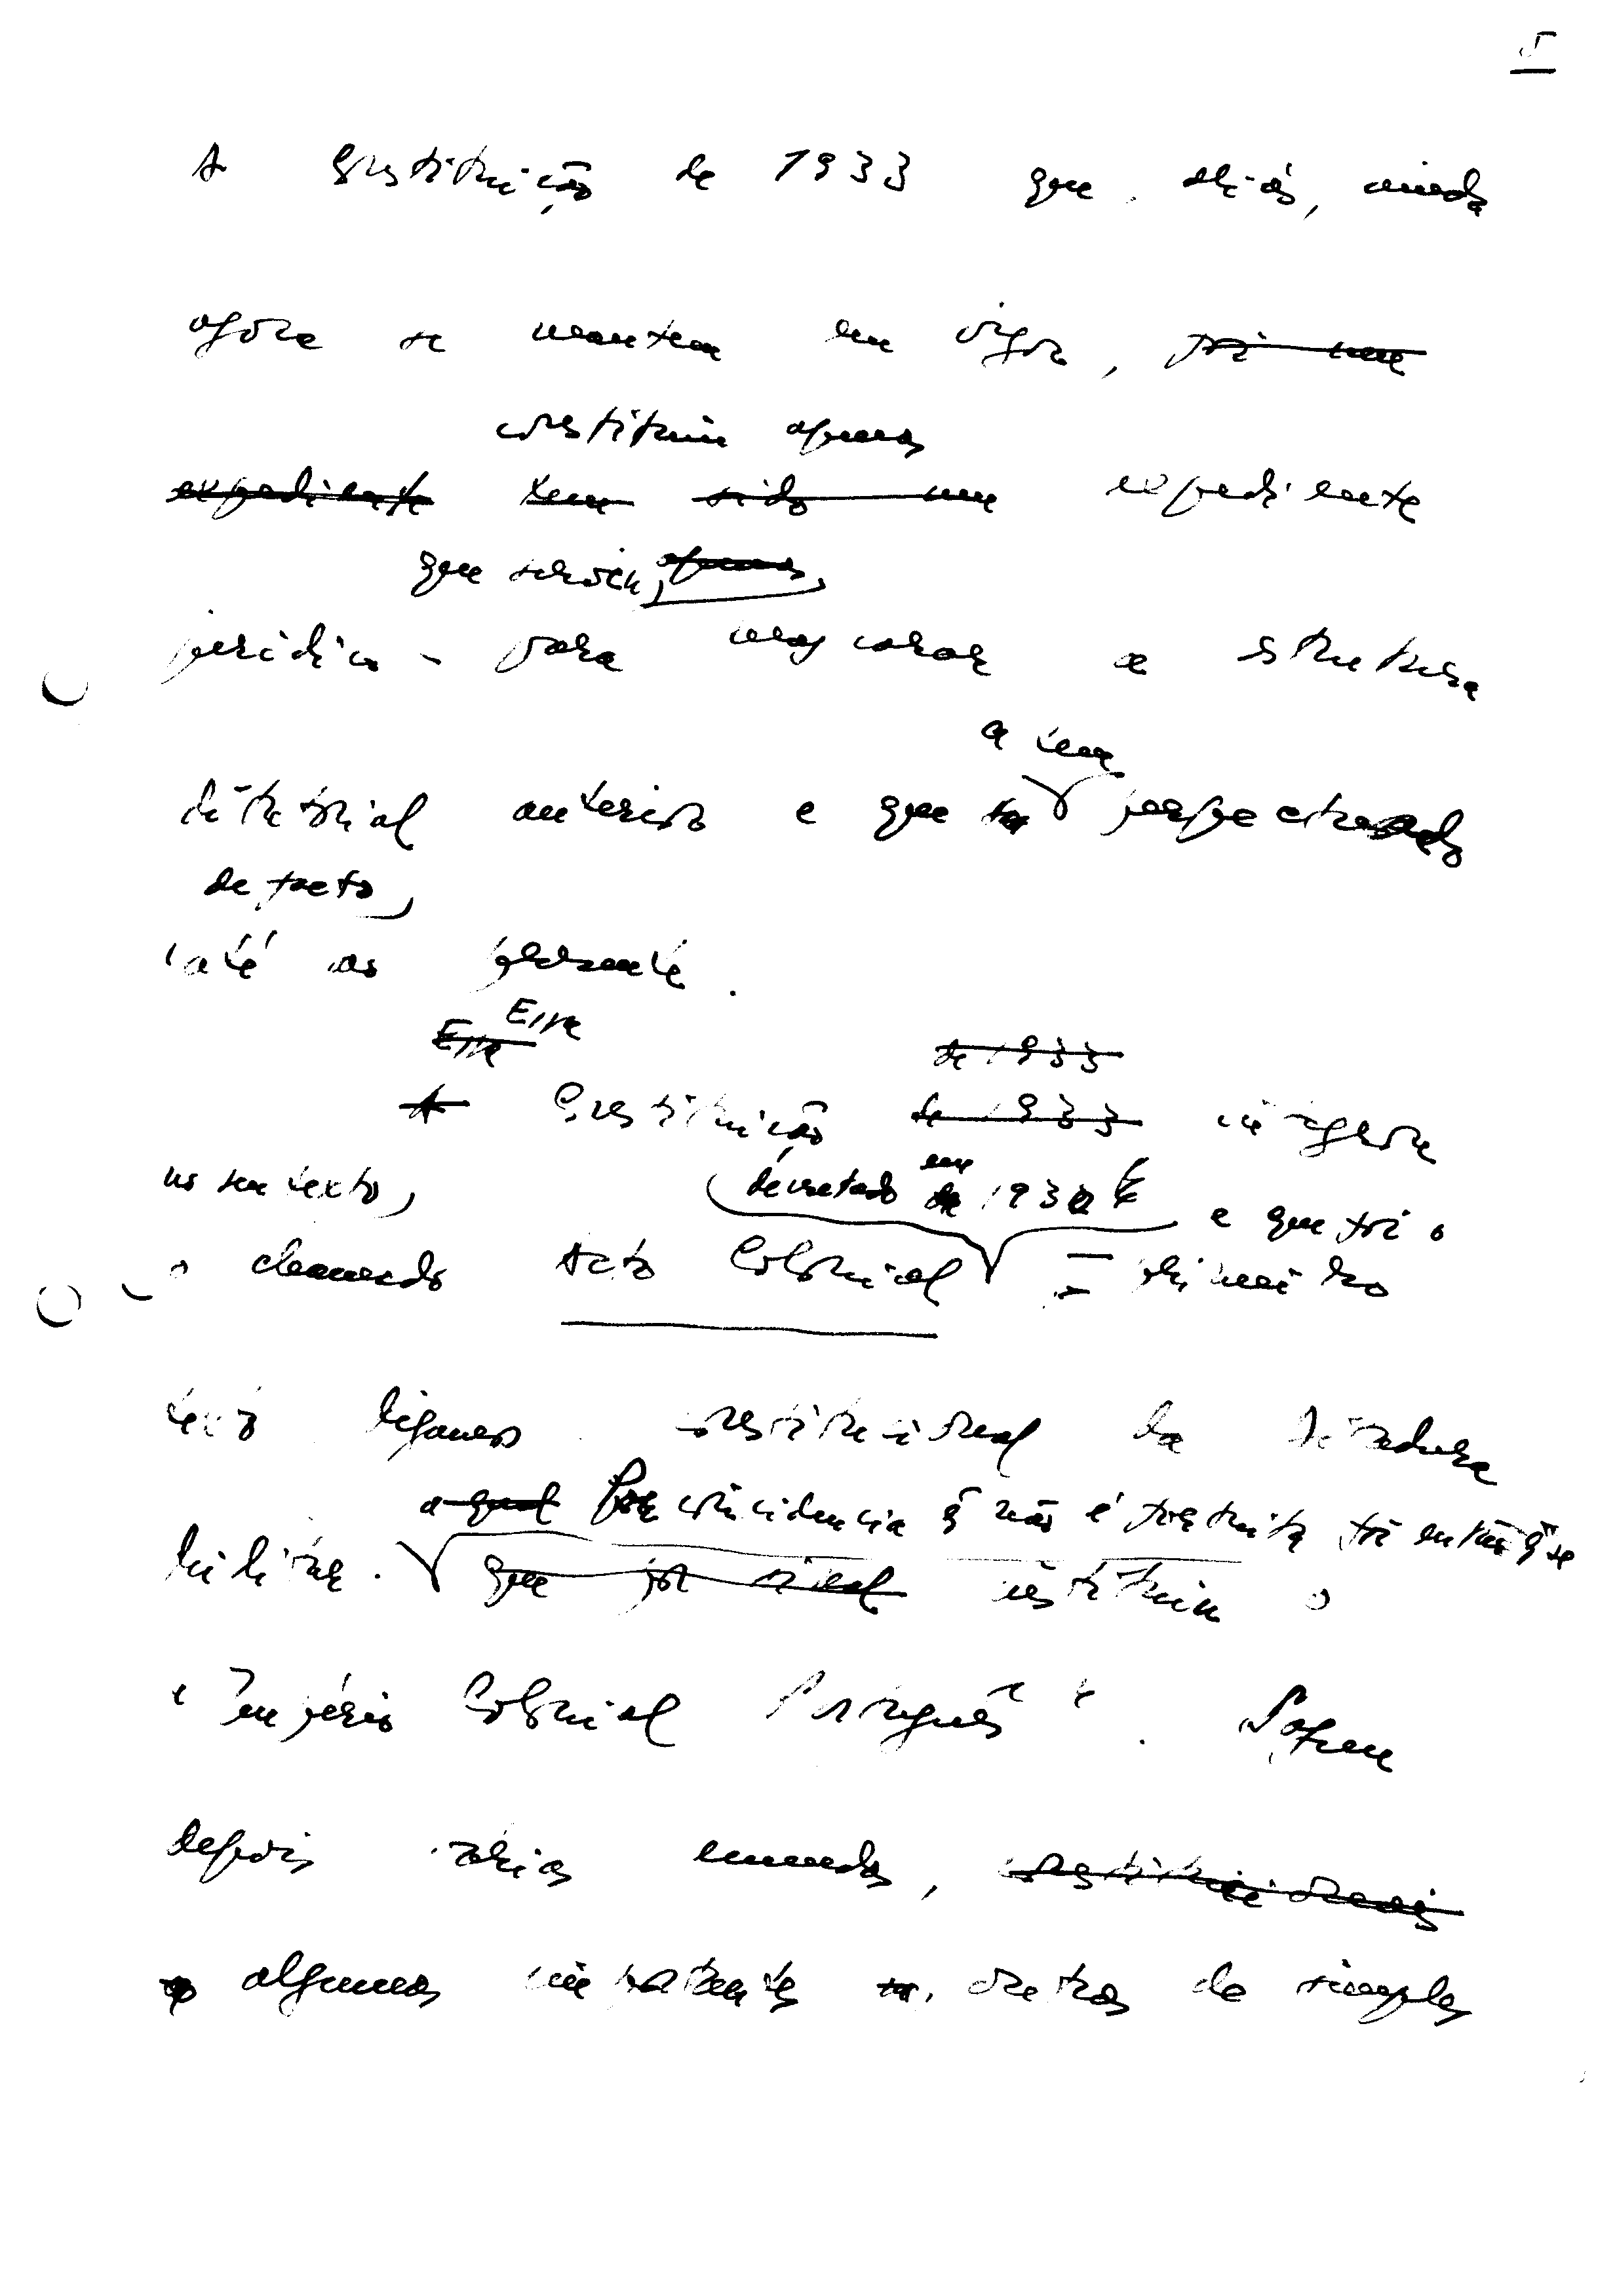 5
A Constituição de 1933 que, aliás, ainda
agora se mantem em vigor, foi uma
constituiu apenas
expediente tem sido um expediente
que serviu, apenas,
jurídico - para mascarar a estrutura
a tem
ditatorial anterior e que perpectuado
de facto,
até ao presente.
Essa Essa
de 1933
A Constituição de 1933 integrou
no seu texto, decretado em 1930 e que foi o
o chamado Acto Colonial primeiro
texto orgânico constitucional da Ditadura
a qual Por coincidencia q̃ não é fortuita foi então q̃ se
Militar. que por sinal instituiu o
"Império Colonial Português". Sofreu
depois várias emendas, constitucionais
algumas importantes, outras de simples